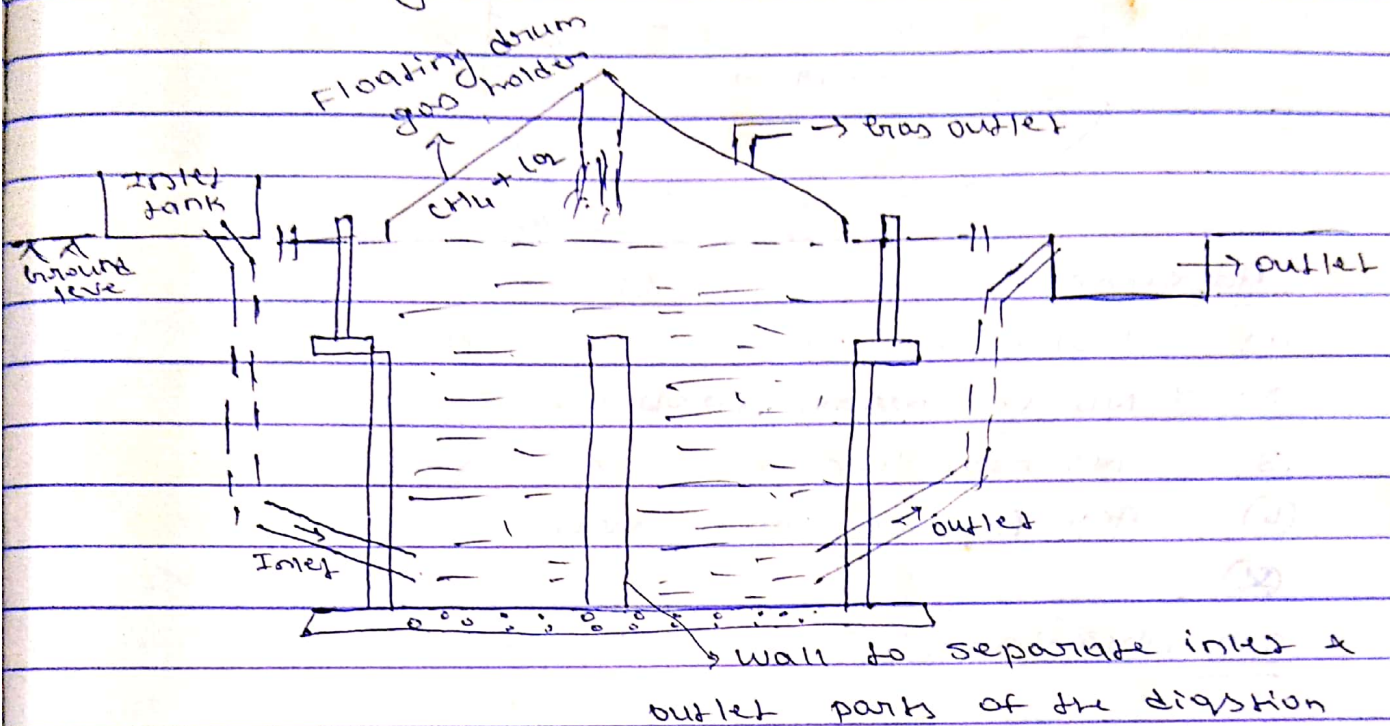 Floating drum
gas holder
→ Gas outlet
Inlet
tank
CH4 + CO2
Ground
leve
→ outlet
Inlet
outlet
wall to separate inlet &
outlet parts of the digstion